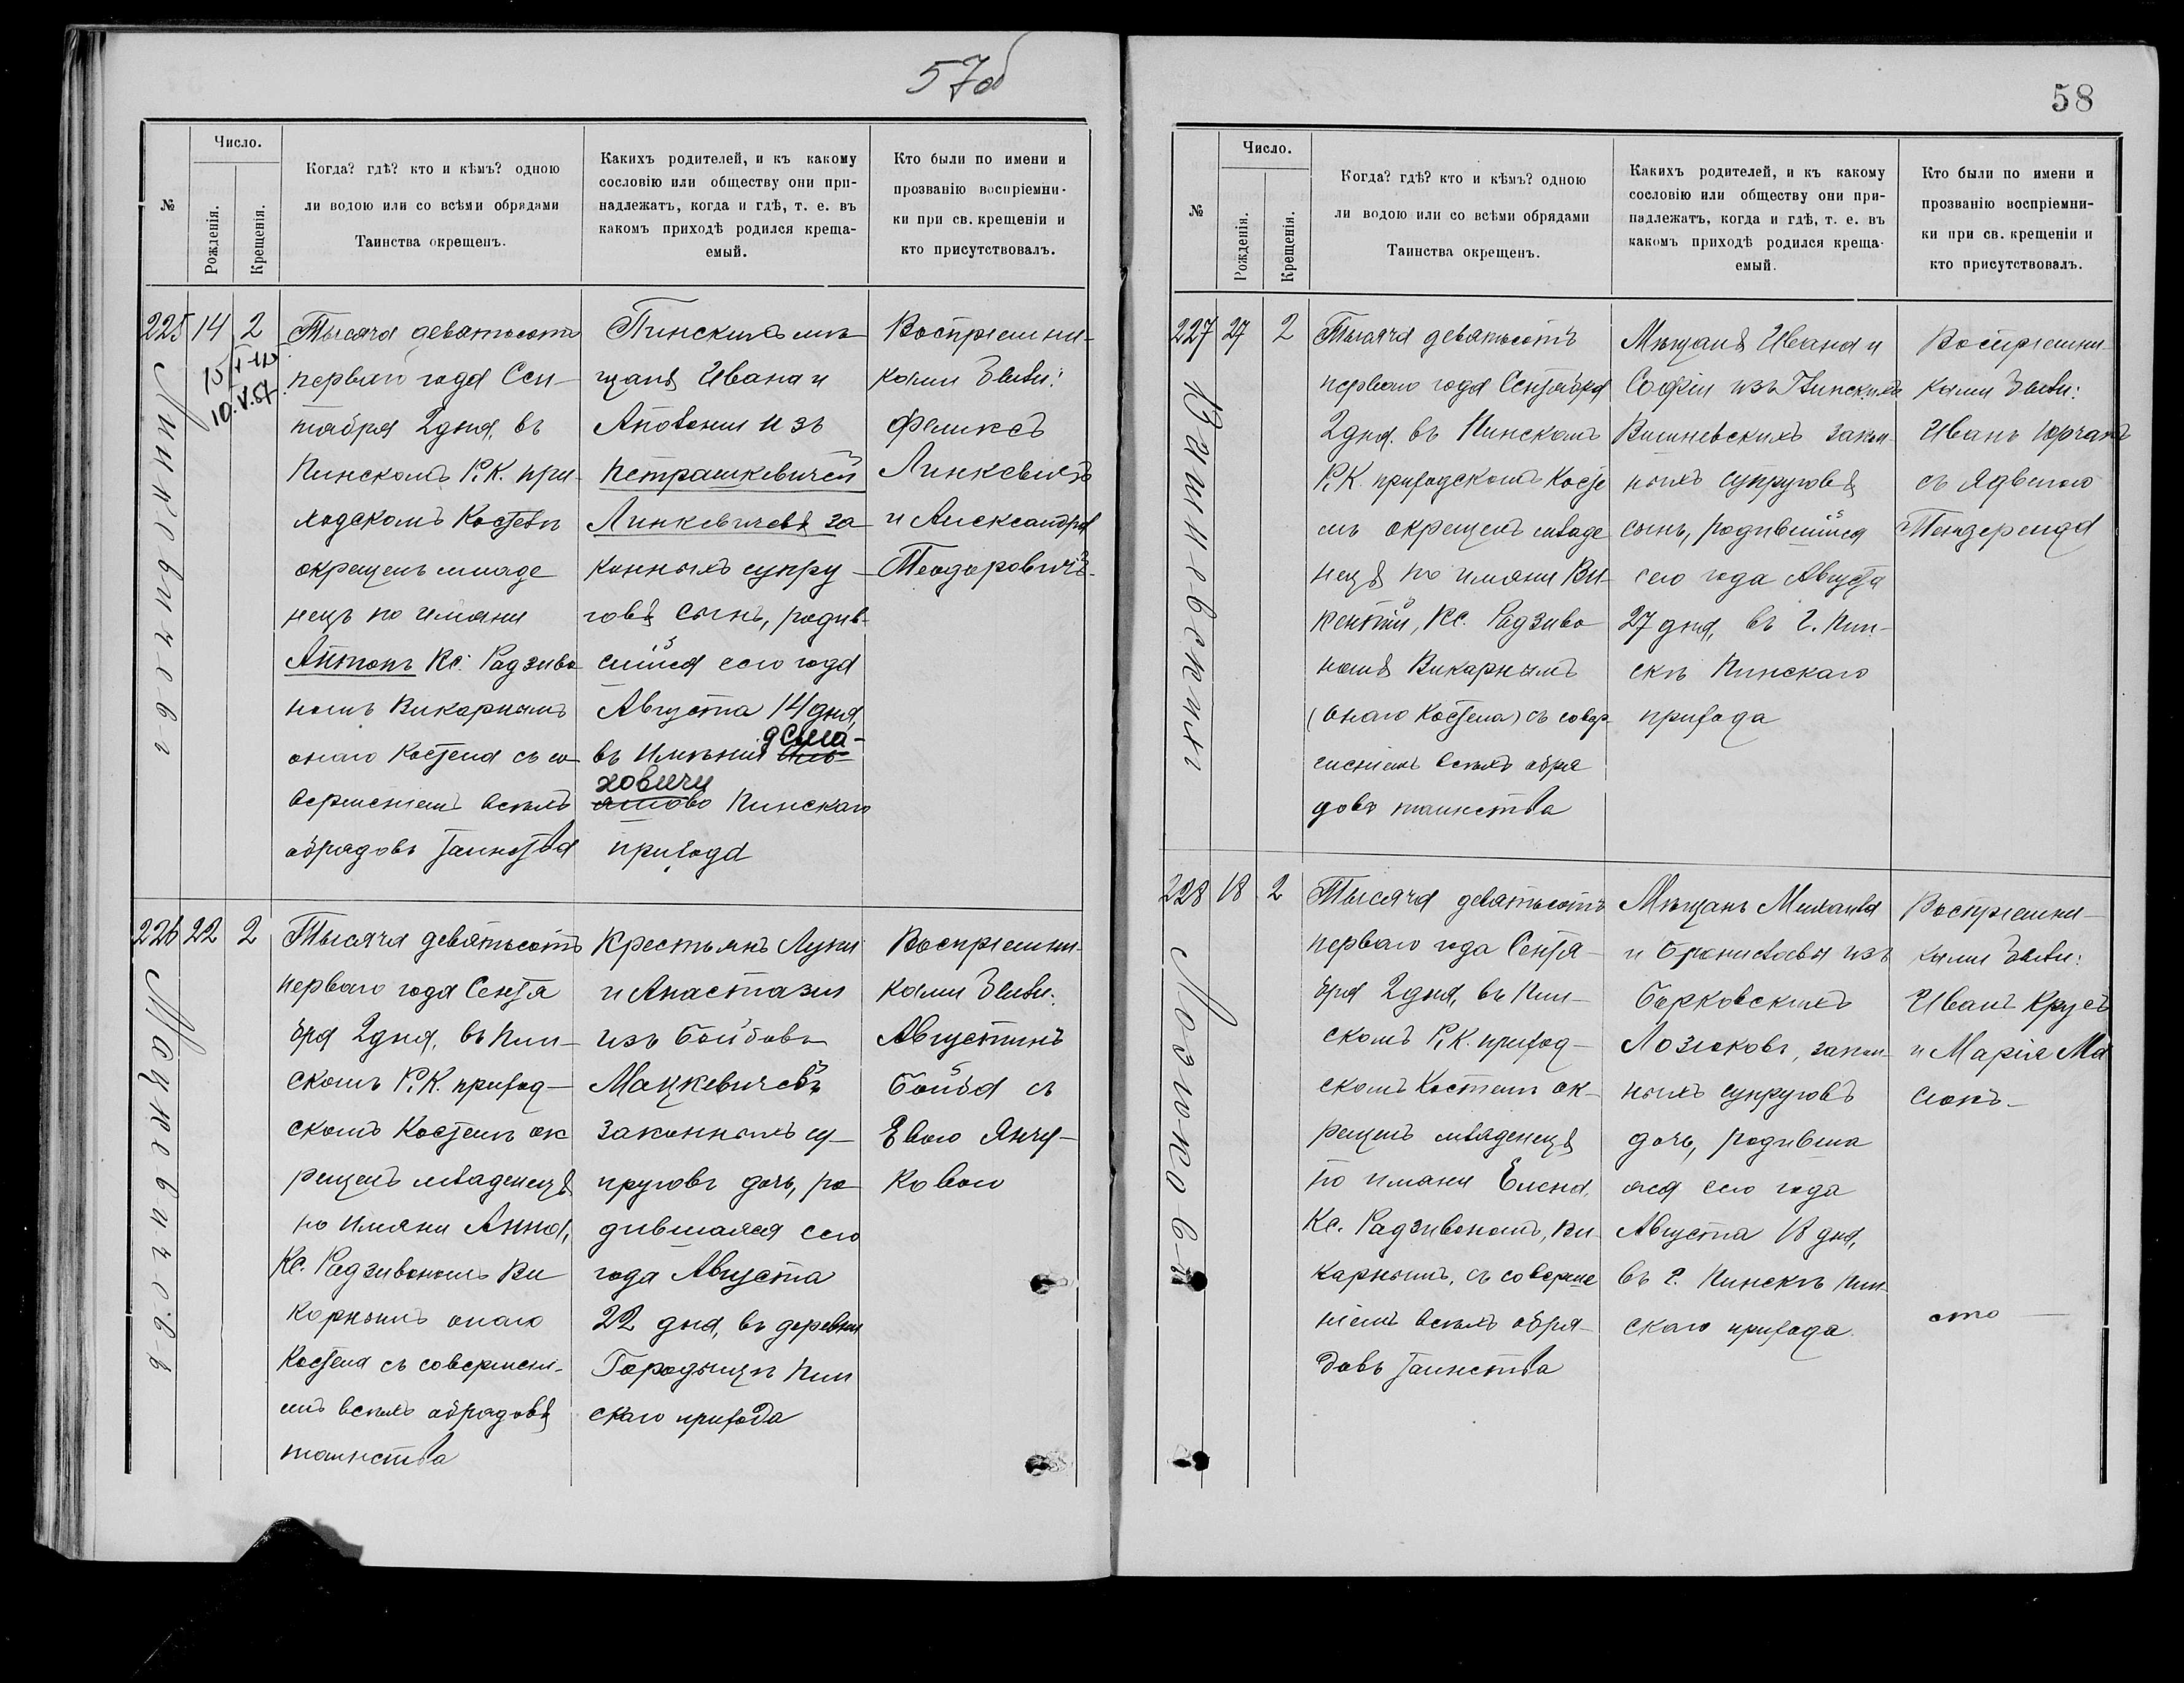 57об
№
Число.
Рожденія.
Крещенія.
Когда? гдѣ? кто и кѣмъ? одною
ли водою или со всѣми обрядами
Таинства окрещенъ.
Какихъ родителей, и къ какому
сословію или обществу они при-
надлежатъ, когда и гдѣ, т. е. въ
какомъ приходѣ родился креща-
емый.
Кто были по имени и
прозванію воспріемни-
ки при св. крещеніи и
кто присутствовалъ.
225
14
2
10.V.
Тысяча девятьсотъ
перваго года Сен-
тября 2 дня, въ
Пинскомъ Р. К. при-
ходскомъ Костелѣ
окрещенъ младе
нецъ по имяни
Антонъ Кс. Радзиво
номъ Викарнымъ
онаго Костела съ со-
вершеніемъ всѣхъ
обрядовъ Таинства
Пинскихъ мѣ
щанъ Ивана и
Аполоніи изъ
Петрашкевичей
Линкевичевъ за
конныхъ супру-
говъ сынъ, родив-
шійся сего года
Августа 14 дня
въ Имѣніи
ховичи Пинскаго
прихода
Воспріемни-
ками были:
Феликсъ
Линкевичъ
и Александра
Теодоровичъ
226
22
2
Мацкевичевъ
Тысяча девятьсотъ
перваго года Сентя
бря 2 дня, въ Пин-
скомъ Р. К. приход-
скомъ Костелѣ ок
рещенъ младенецъ
по Имяни Анна,
Кс. Радзивономъ Ви
карнымъ онаго
Костела съ совершені-
емъ всѣхъ обрядовъ
таинства
Крестьянъ Луки
и Анастазіи
изъ Бойбовъ
Мацкевичевъ
законныхъ су-
пруговъ дочь, ро-
дившаяся сего
года Августа
22 дня, въ деревни
Городыщѣ Пин
скаго прихода
Воспріемни-
ками были:
Августинъ
Бойба съ
Евою Янчу-
ковою
58
№
Число.
Рожденія.
Крещенія.
Когда? гдѣ? кто и кѣмъ? одною
ли водою или со всѣми обрядами
Таинства окрещенъ.
Какихъ родителей, и къ какому
сословію или обществу они при-
надлежатъ, когда и гдѣ, т. е. въ
какомъ приходѣ родился креща-
емый.
Кто были по имени и
прозванію воспріемни-
ки при св. крещеніи и
кто присутствовалъ.
227
27
2
Тысяча девятьсотъ
перваго года Сентября
2 дня. въ Пинскомъ
Р. К. приходскомъ Косте
лѣ окрещенъ младе
нецъ по имяни Ви-
кентій, Кс. Радзиво
номъ Викарнымъ
(онаго Костела) съ совер-
шеніемъ всѣхъ обря
довъ таинства
Мѣщанъ Ивана и
Софіи изъ
Вишневскихъ закон-
ныхъ супруговъ
сынъ, родившійся
сего года Августа
27 дня, въ г. Пин-
скѣ Пинскаго
прихода
Воспріемни-
ками были:
Иванъ
съ Ядвигою
228
18
2
Лозюковъ
Тысяча девятьсотъ
перваго года Сентя-
бря 2 дня, въ Пин-
скомъ Р. К. приход-
скомъ Костелѣ ок-
рещенъ младенецъ
по имяни Елена,
Кс. Радзивономъ, Ви-
карнымъ, съ соверше
ніемъ всѣхъ обря-
довъ Таинства
Мѣщанъ Михаила
и Брониславы изъ
Борковскихъ
Лозюковъ, закон-
ныхъ супруговъ
дочь, родивша
яся сего года
Августа 18 дня,
въ г. Пинскѣ Пин-
скаго прихода.
Воспріемни-
ками были:
Иванъ Крусь
и Марія Ма
сюкъ
сто